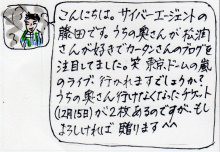 こんにちは。サイバーエージェントの
藤田です。うちの奥さんが松潤
さんが好きでカータンさんのブログを
注目してました。笑 東京ドームの嵐
のライブ 行かれますでしょうか?
うちの奥さん行けなくなったチケット
(12月15日)が2枚あるのですが、もし
よろしければ 贈ります^^